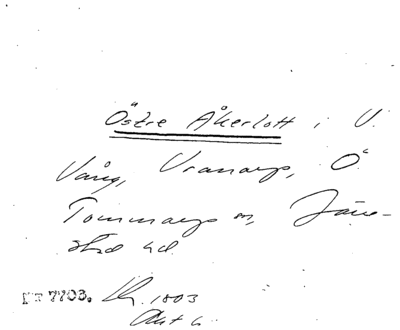 Östre Åkerlott i V.
Vång, Vranarps, Ö
Tommarps sn, Järre-
stad hd.
7703. 1803
Akt 6